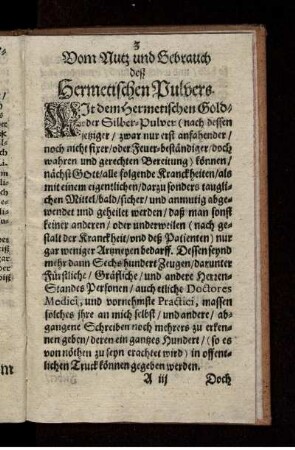 3
Vom Nutz und Gebrauch
deß
Hermetischen Pulvers.
MIt dem Hermetischen Gold-
oder Silber-Pulver (nach dessen
jetziger / zwar nur erst anfahender /
noch nicht fixer / oder Feuer-beständiger / doch
wahren und gerechten Bereitung) können /
nächst Gott / alle folgende Kranckheiten / als
mit einem eigentlichen / darzu sonders taugli-
chen Mittel / bald / sicher / und anmutig abge-
wendet und geheilet werden / daß man sonst
keiner anderen / oder underweilen (nach ge-
stalt der Kranckheit / vnd deß Patienten) nur
gar weniger Artzneyen bedarff. Dessen seynd
mehr dann Sechs hundert Zeugen / darunter
Fürstliche / Gräfliche / und andere Herren-
Standes Personen / auch etliche Doctores
Medici, und vornehmste Practici, massen
solches ihre an mich selbst / und andere / ab-
gangene Schreiben noch mehrers zu erken-
nen geben / deren ein gantzes Hundert / (so es
von nöthen zu seyn erachtet wird) in offent-
lichen Truck können gegeben werden.
A iij Doch